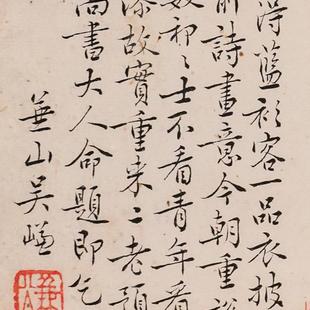 得藍衫客一品衣披
前詩畫意今朝重
初〻士不看青年看
添故實重来二老
尚書大人命題即乞
燕山吳